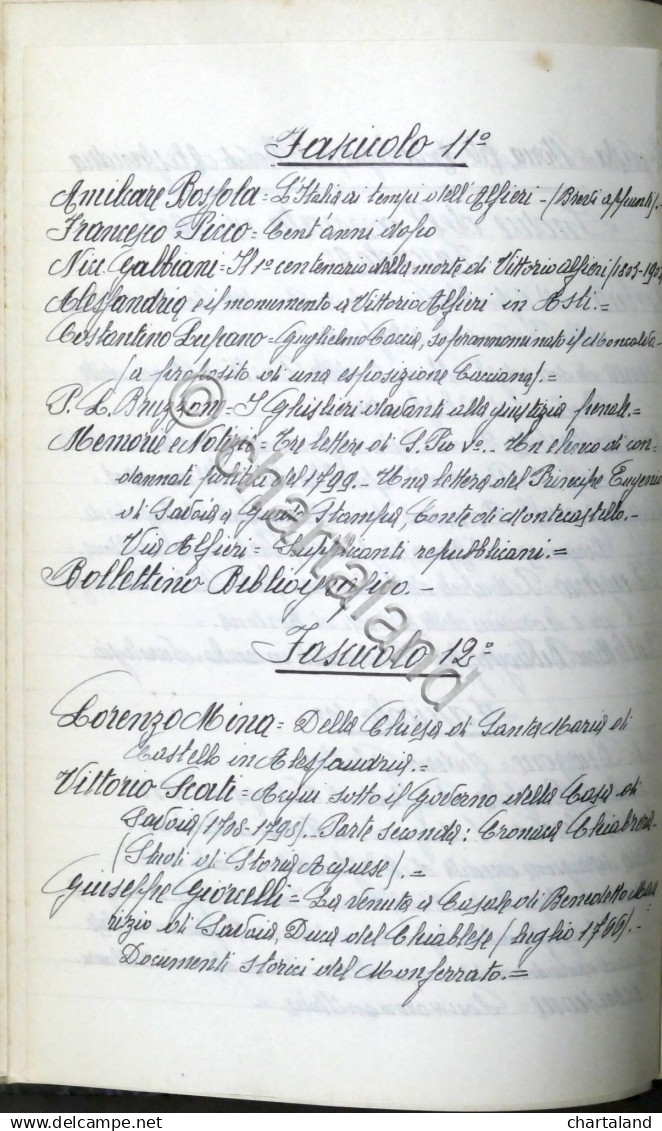 Fascicolo 11º
Amilcare Bossola = L'Italia ai tempi dell'Alfieri - (Brevi appunti). -
Francesco Picco = Cent'anni dopo
Nic. Gabbiani = Il 1º centenario della morte di Vittorio Alfieri (1803-1903
Alessandria e il monumento a Vittorio Alfieri in Asti. =
Costantino Lupano = Guglielmo Caccia, soprannominato il Moncalvo -
(a proposito di una esposizione Cacciana). =
P. L. Bruzzone = I Ghislieri davanti alla giustizia penale. =
Memorie e Notizie = Tre lettere di S. Pio Vº. - Un elenco di con=
dannati politici del 1799 - Una lettera del Principe Eugenio
di Savoia a Guido Stampa, Conte di Montecastello. -
Via Alfieri = Supplicanti repubblicani. =
Bollettino Bibliografico. -
Fascicolo 12º
Lorenzo Mina = Della Chiesa di Santa Maria di
Castello in Alessandria. =
Vittorio Scati = Acqui sotto il Governo della Casa di
Savoia (1708-1795). - Parte seconda: Cronaca Chiabrera -
(Studi di Storia Acquese). =
Giuseppe Giorcelli = La venuta a Casale di Benedetto Mau
rizio di Savoia, Duca del Chiablese (luglio 1766). -
Documenti storici del Monferrato. =
© chartaland
chartaland